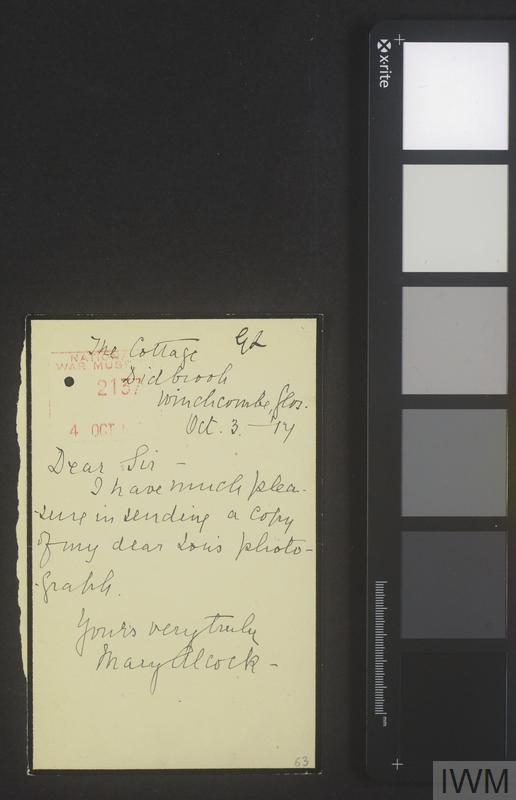 x·rite
The Cottage G2
NATIONAL
WAR MUSE
2137
Didbrook
Winchcombe, Glos.
4 OCT
Oct. 3. - 17
Dear Sir -
I have much plea-
-sure in sending a copy
of my dear son's photo-
-graph.
Yours very truly
Mary Alcock -
63
mm
IWM